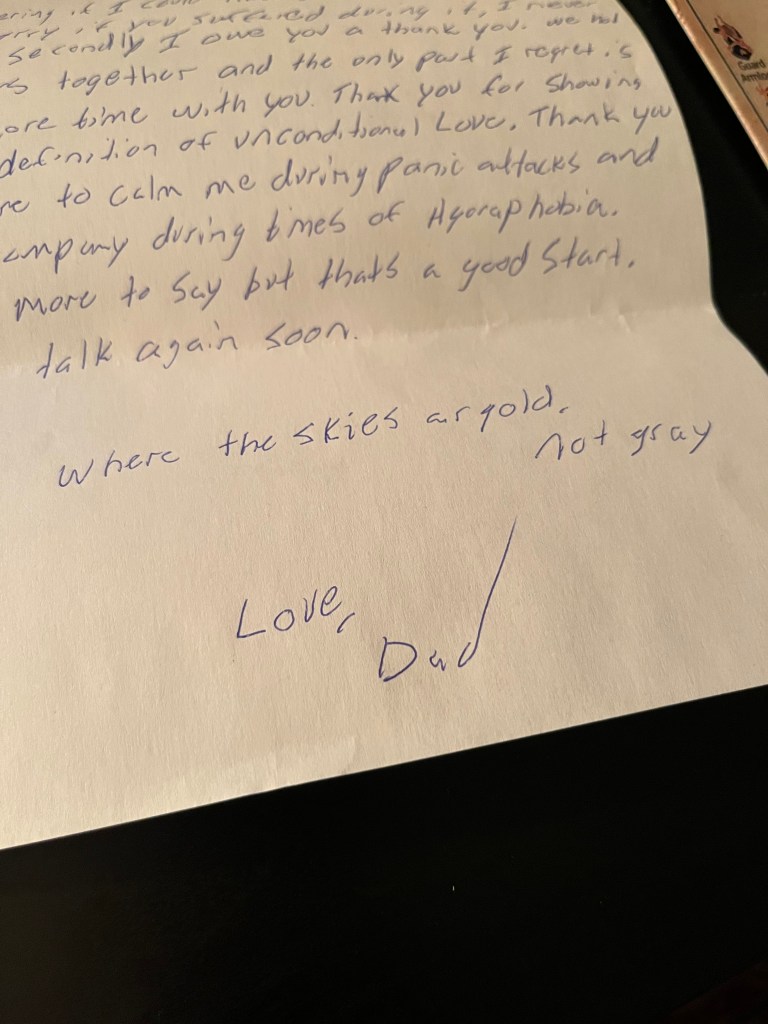 ering if I could
if you suffered during it, I never
secondly I owe you a thank you. we had
together and the only part I regret is
ore time with you. Thak you for showing
definition of unconditional Love. Thank you
re to calm me during panic attacks and
ompany during times of Agoraphobia.
more to say but thats a good start.
talk again soon.
where the skies ar gold.
not gray
Love,
Dad
Guard